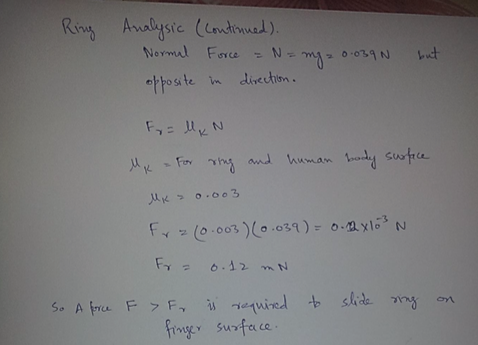 Ring Analysic (Continued).
Normal Force = N = mg = 0.039 N but
opposite in direction.
Fr = μK N
μK = For ring and human body surface
μK = 0.003
Fr = (0.003)(0.039) = 0.12 x 10⁻³ N
Fr = 0.12 mN
So A force F > Fr is required to slide ring on
finger surface.